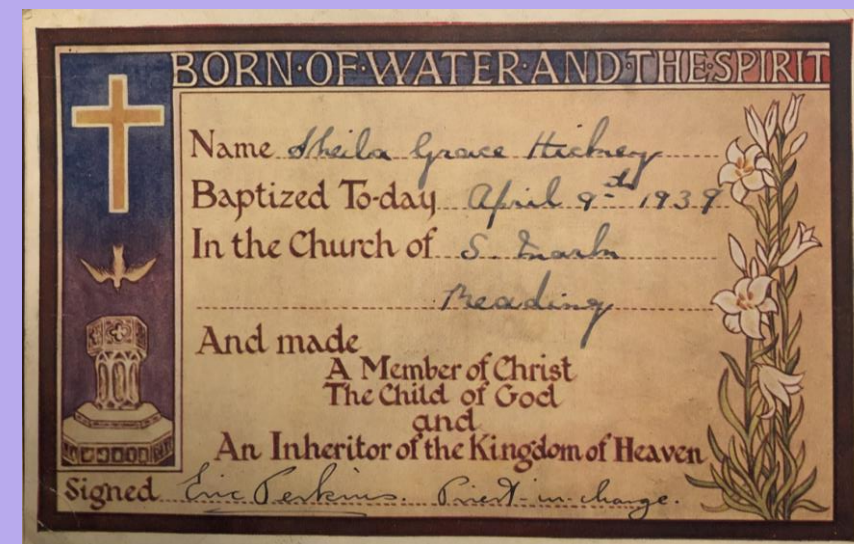 BORN·OF·WATER·AND·THE·SPIRIT
Name Sheila Grace Hickney
Baptized To-day April 9th 1939
In the Church of S. Marks
Reading
And made
A Member of Christ
The Child of God
and
An Inheritor of the Kingdom of Heaven
Signed Eric Perkins. Priest-in-charge.